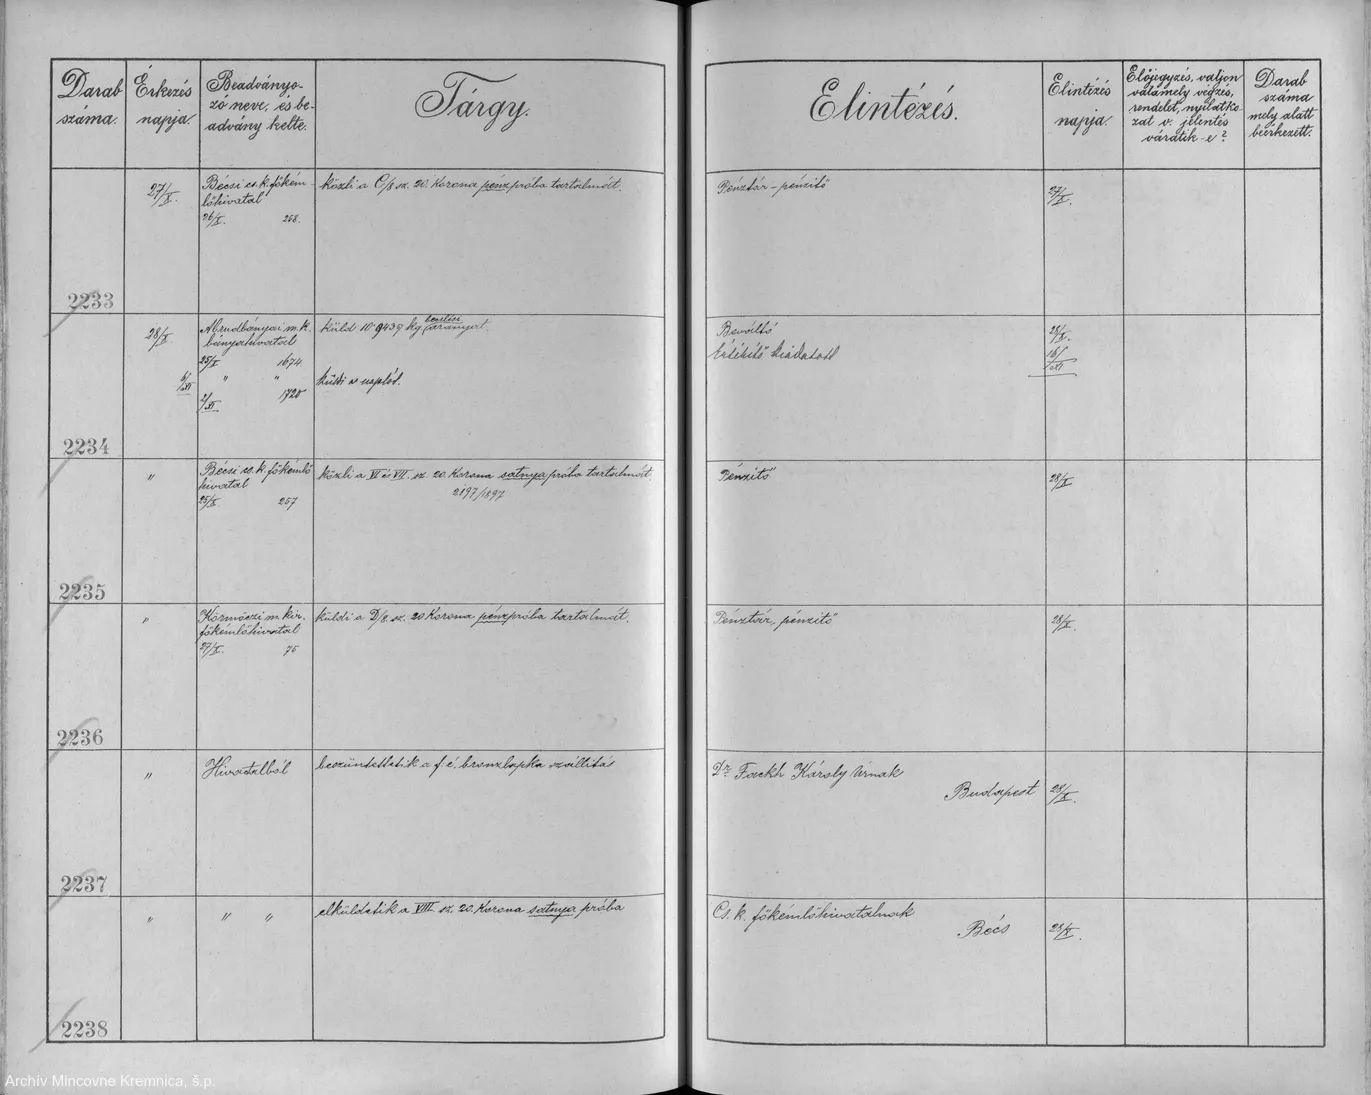 Darab
száma.
Érkezés
napja.
Beadványo-
zó neve, és be-
advány kelte.
Tárgy.
Elintézés.
Elintézés
napja.
Előjegyzés, valjon
valamely végzés,
rendelet, nyilatko-
zat v. jelentés
váratik-e?
Darab
száma
mely alatt
beérkezett.
27/X.
Bécsi cs. k. főkém-
lőhivatal
26/X. 258.
közli a C/8 sz. 20. Korona pénzpróba tartalmát.
Pénztár – pénzitő
27/X.
2233
28/X.
Abrudbányai m. k.
bányahivatal
25/X 1674
küld 10.9439 kg aranyat.
Beváltó
28/X.
kiadatott
16/XI
6/XI
" "
2/XI 1725
küldi a naplót.
2234
"
Bécsi cs. k. főkémlő
hivatal
25/X 257
közli a VI és VII. sz. 20. Korona satnya próba tartalmát
2197/1897
Pénzitő
28/X.
2235
"
Körmöczi m. kir.
főkémlőhivatal
27/X. 75
küldi a D/8. sz. 20 Korona pénzpróba tartalmát.
Pénztár, pénzitő
28/X.
2236
"
Hivatalból
beszüntettetik a f. é. bronzlapka szállítás
Dr. Fackh Károly Úrnak
Budapest
28/X.
2237
"
" "
elküldetik a VIII sz. 20. Korona satnya próba
Cs. k. főkémlőhivatalnak
Bécs
28/X.
2238
Archív Mincovne Kremnica, š.p.